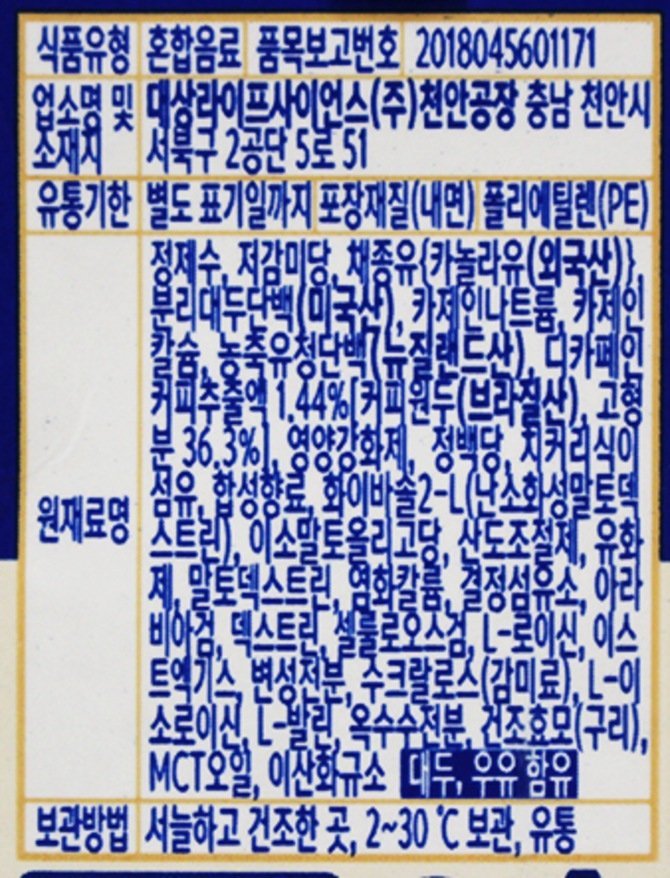 식품유형 혼합음료 품목보고번호 2018045601171
업소명 및 소재지 대상라이프사이언스(주)천안공장 충남 천안시
서북구 2공단 5로 51
유통기한 별도 표기일까지 포장재질(내면) 폴리에틸렌(PE)
원재료명
정제수, 저감미당, 채종유{카놀라유(외국산)},
분리대두단백(미국산), 카제인나트륨, 카제인
칼슘, 농축유청단백(뉴질랜드산), 디카페인
커피추출액 1.44%[커피원두(브라질산), 고형
분 36.3%], 영양강화제, 정백당, 치커리식이
섬유, 합성향료, 화이바솔2-L(난소화성말토덱
스트린), 이소말토올리고당, 산도조절제, 유화
제, 말토덱스트린, 염화칼륨, 결정섬유소, 아라
비아검, 덱스트린, 셀룰로오스검, L-로이신, 이스
트엑기스, 변성전분, 수크랄로스(감미료), L-이
소로이신, L-발린, 옥수수전분, 건조효모(구리),
MCT오일, 이산화규소 대두, 우유 함유
보관방법 서늘하고 건조한 곳, 2~30 ℃ 보관, 유통